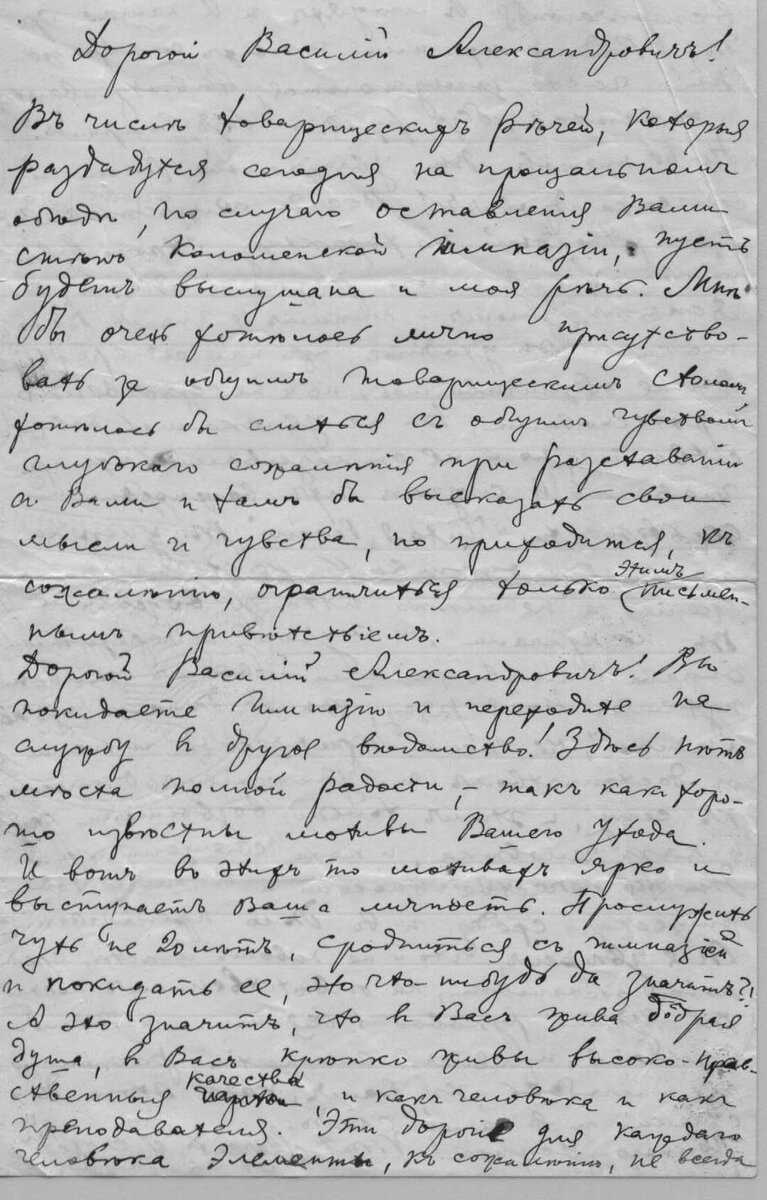 Дорогой Василій Александровичъ!
Въ числѣ товарищескихъ рѣчей, которыя
раздадутся сегодня на прощальномъ
обѣдѣ, по случаю оставленія Вами
стѣнъ Коломенской Гимназіи, пусть
будетъ выслушана и моя рѣчь. Мнѣ
бы очень хотѣлось лично присутство-
вать за общимъ товарищескимъ столомъ,
хотѣлось бы слиться съ общимъ чувствомъ
глубокаго сожалѣнія при разставаніи
съ Вами и тамъ бы высказать свои
мысли и чувства, но приходится, къ
сожалѣнію, ограничиться только этимъ письмен-
нымъ привѣтствіемъ.
Дорогой Василій Александровичъ! Вы
покидаете Гимназію и переходите на
службу въ другое вѣдомство! Здѣсь нѣтъ
мѣста полной радости, – такъ какъ хоро-
шо извѣстны мотивы Вашего ухода.
И вотъ въ этихъ то мотивахъ ярко и
выступаетъ Ваша личность. Прослужить
чуть не 20 лѣтъ, сродниться съ гимназіей
и покидать ее, это что-нибудь да значитъ?!
А это значитъ, что въ Васъ жива добрая
душа, въ Васъ крѣпко живы высоко-нрав-
ственныя качества и какъ человѣка и какъ
преподавателя. Эти дорогіе для каждаго
человѣка элементы, къ сожалѣнію, не всегда